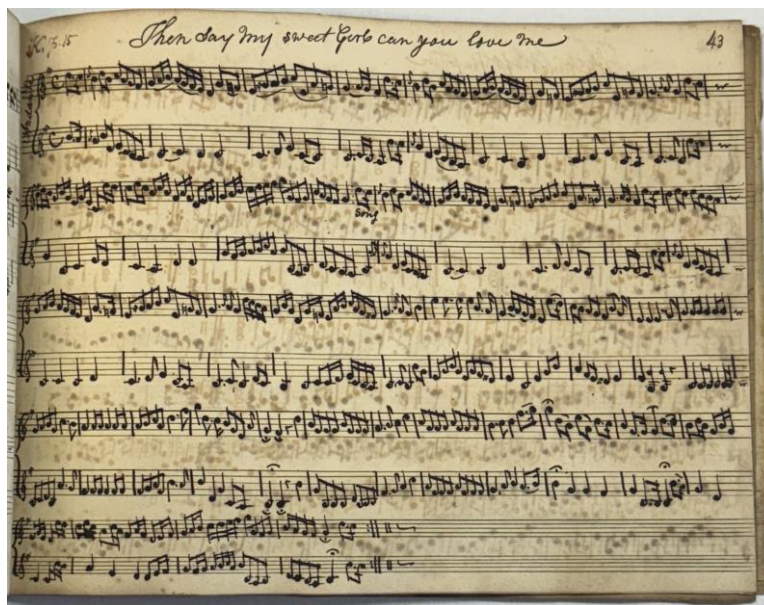 Then Say My sweet Girl can you love me
43
Song